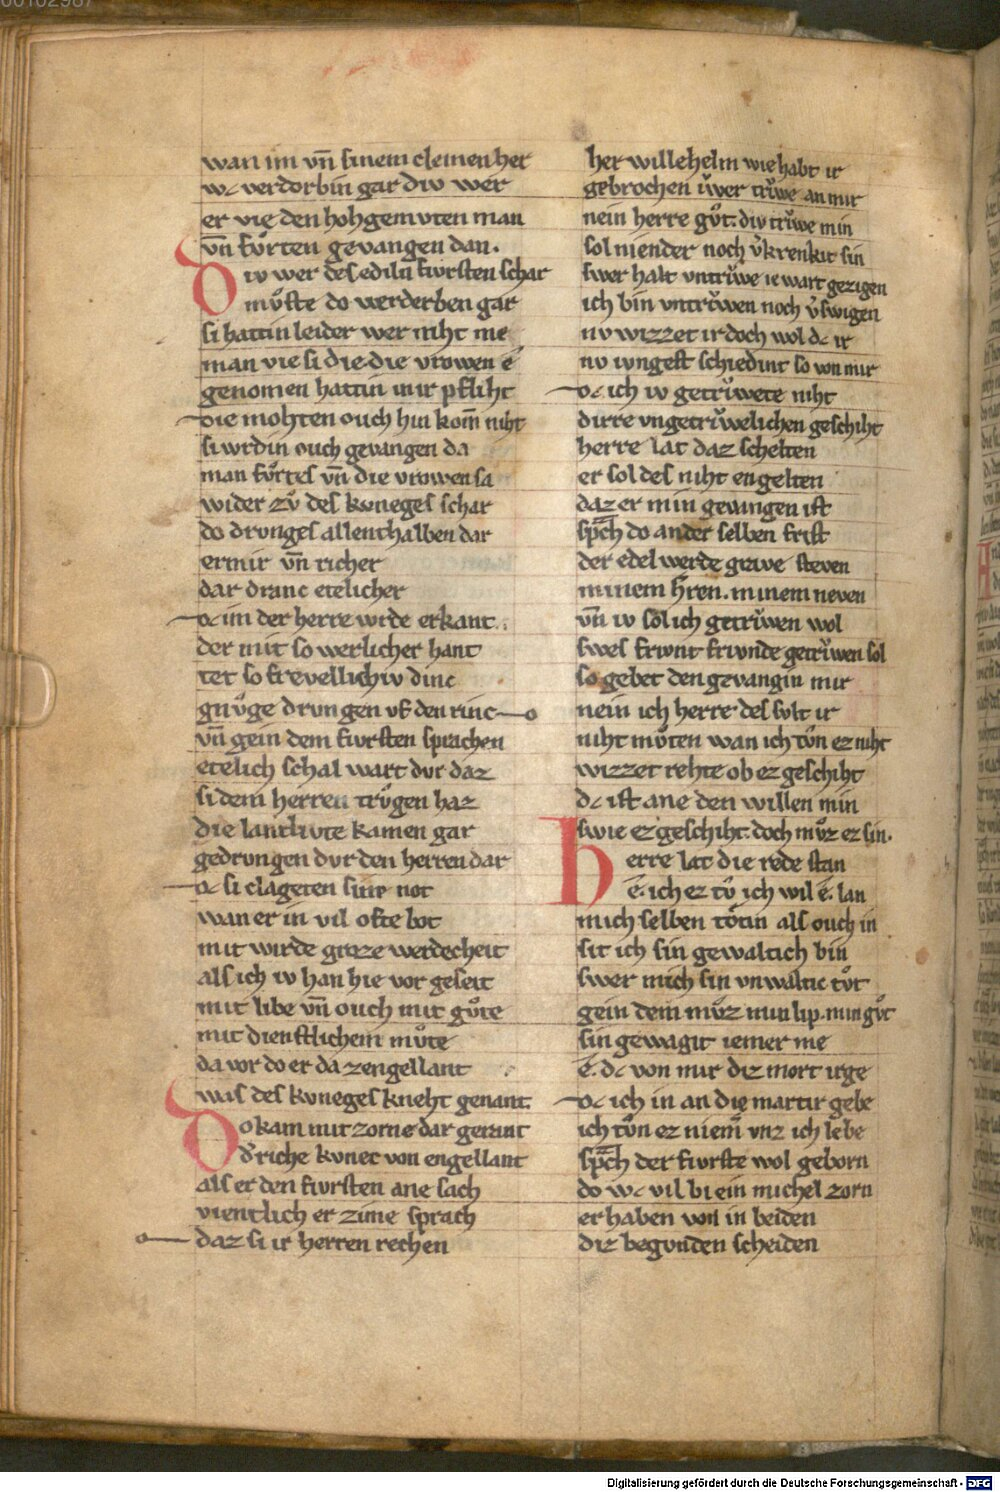 wan im vn̄ sinem cleinen her
wc verdorbin gar div wer
er vie den hohgemvten man
vn̄ fvͦrten gevangen dan.
Div wer des ediln̄ fivrsten schar
mvͦste do werderben gar
si hattin leider wer niht me
man vie si die die vrowen é
genomen hattin inir pfliht
die mohten ouch hin kom̄ niht
si wrdin ouch gevangen da
man fvͦrtes vn̄ die vrowen sa
wider zvͦ des kvneges schar
do drunges allenthalben dar
ermir vn̄ richer
dar dranc etelicher
dc im der herre wrde erkant.
der mit so werlicher hant
tet so frevellichiv dinc
gnvͦge drvngen vf den rinc
vn̄ gein dem fivrsten sprachen
etelich schal wart dvr daz
si dem herren trvͦgen haz
die lantlivte kamen gar
gedrvngen dvr den herren dar
dc si clageten sine not
wan er in vil ofte bot
mit wirde groze werdecheit
als ich iv han hie vor geseit
mit libe vn̄ ouch mit gvͦte
mit dienstlichem mvͦte
da vor do er da zengellant
was des kvneges kneht genant
Do kam mit zorne dar gerant
d̾ riche kvnec von engellant
als er den fivrsten ane sach
vientlich er zime sprach
daz si ir herren rechen
her willehelm wie habt ir
gebrochen ivͦwer trivͦwe an mir
nein herre gvͦt. div trvͦwe min
sol niender noch v̾krenkit sin
swer halt vntrvͦwe ie wart gezigen
ich bin vntrvͦwen noch v̾swigen
nv wizzet ir doch wol dc ir
nv ivngest schiedint so von mir
dc ich iv getrvͦwete niht
dirre vngetrvͦwelichen geschiht
herre lat daz schelten
er sol des niht engelten
daz er min gevangen ist
sp̄ch do an der selben frist
der edel werde grave steven
minem h̄ren. minem neven
vn̄ iv sol ich getrvͦwen wol
swes frivnt frivnde getrvͦwen sol
so gebet den gevangin mir
nein ich herre des svlt ir
niht mvͦten wan ich tvͦn ez niht
wizzet rehte ob ez geschiht
dc ist ane den willen min
swie ez geschiht. doch mvͦz ez sin.
Herre lat die rede stan
é. ich ez tvͦ ich wil é. lan
mich selben tôtin als ouch in
sit ich sin gewaltich bin
swer mich sin vnwaltic tvͦt
gein dem mvͦz min lip. min gvͦt
sin gewagit iemer me
é. dc von mir diz mort irge
dc ich in an die martir gebe
ich tvͦn ez niem̄ vnz ich lebe
sp̄ch der fivrste wol geborn
do wc vil bi ein michel zorn
erhaben von in beiden
diz begvnden scheiden
Digitalisierung gefördert durch die Deutsche Forschungsgemeinschaft - DFG